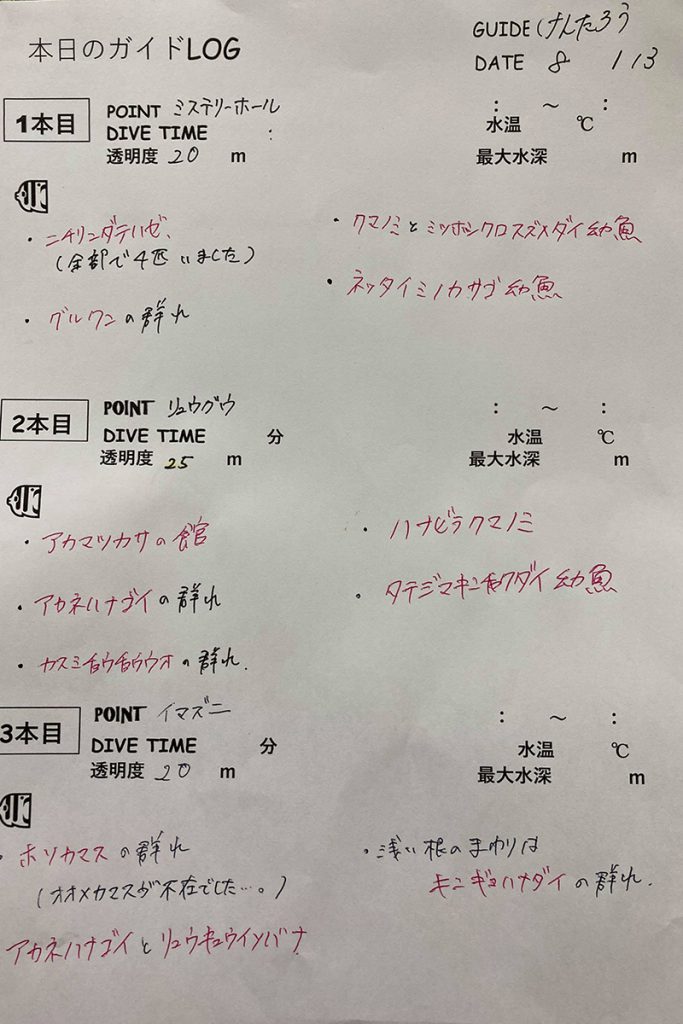 本日のガイドLOG
GUIDE けんたろう
DATE 8 / 13
1本目
POINT ミステリーホール
DIVE TIME :
透明度 20 m
: ～ :
水温 ℃
最大水深 m
・ニチリンダテハゼ、
(全部で4匹いました)
・グルクンの群れ
・クマノミとミツボシクロスズメダイ幼魚
・ネッタイミノカサゴ幼魚
2本目
POINT リュウグウ
DIVE TIME 分
透明度 25 m
: ～ :
水温 ℃
最大水深 m
・アカマツカサの館
・アカネハナゴイの群れ
・カスミチョウチョウウオの群れ.
・ハナビラクマノミ
・タテジマキンチャクダイ幼魚
3本目
POINT イマズニ
DIVE TIME 分
透明度 20 m
: ～ :
水温 ℃
最大水深 m
・ホソカマスの群れ
(オオメカマスが不在でした…。)
アカネハナゴイとリュウキュウイソバナ
・浅い根のまわりは
キンギョハナダイの群れ.